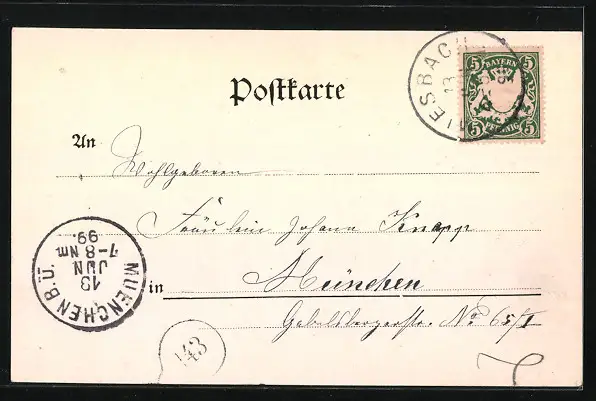 Postkarte
MIESBACH
13
5 BAYERN 5
5 PFENNIG 5
An Wohlgeboren
Fräulein Johann Knapp
in München
Gabelsbergerstr. No 65/I
MUENCHEN B.Ü.
13
JUN
7-8 Nm.
99.
143